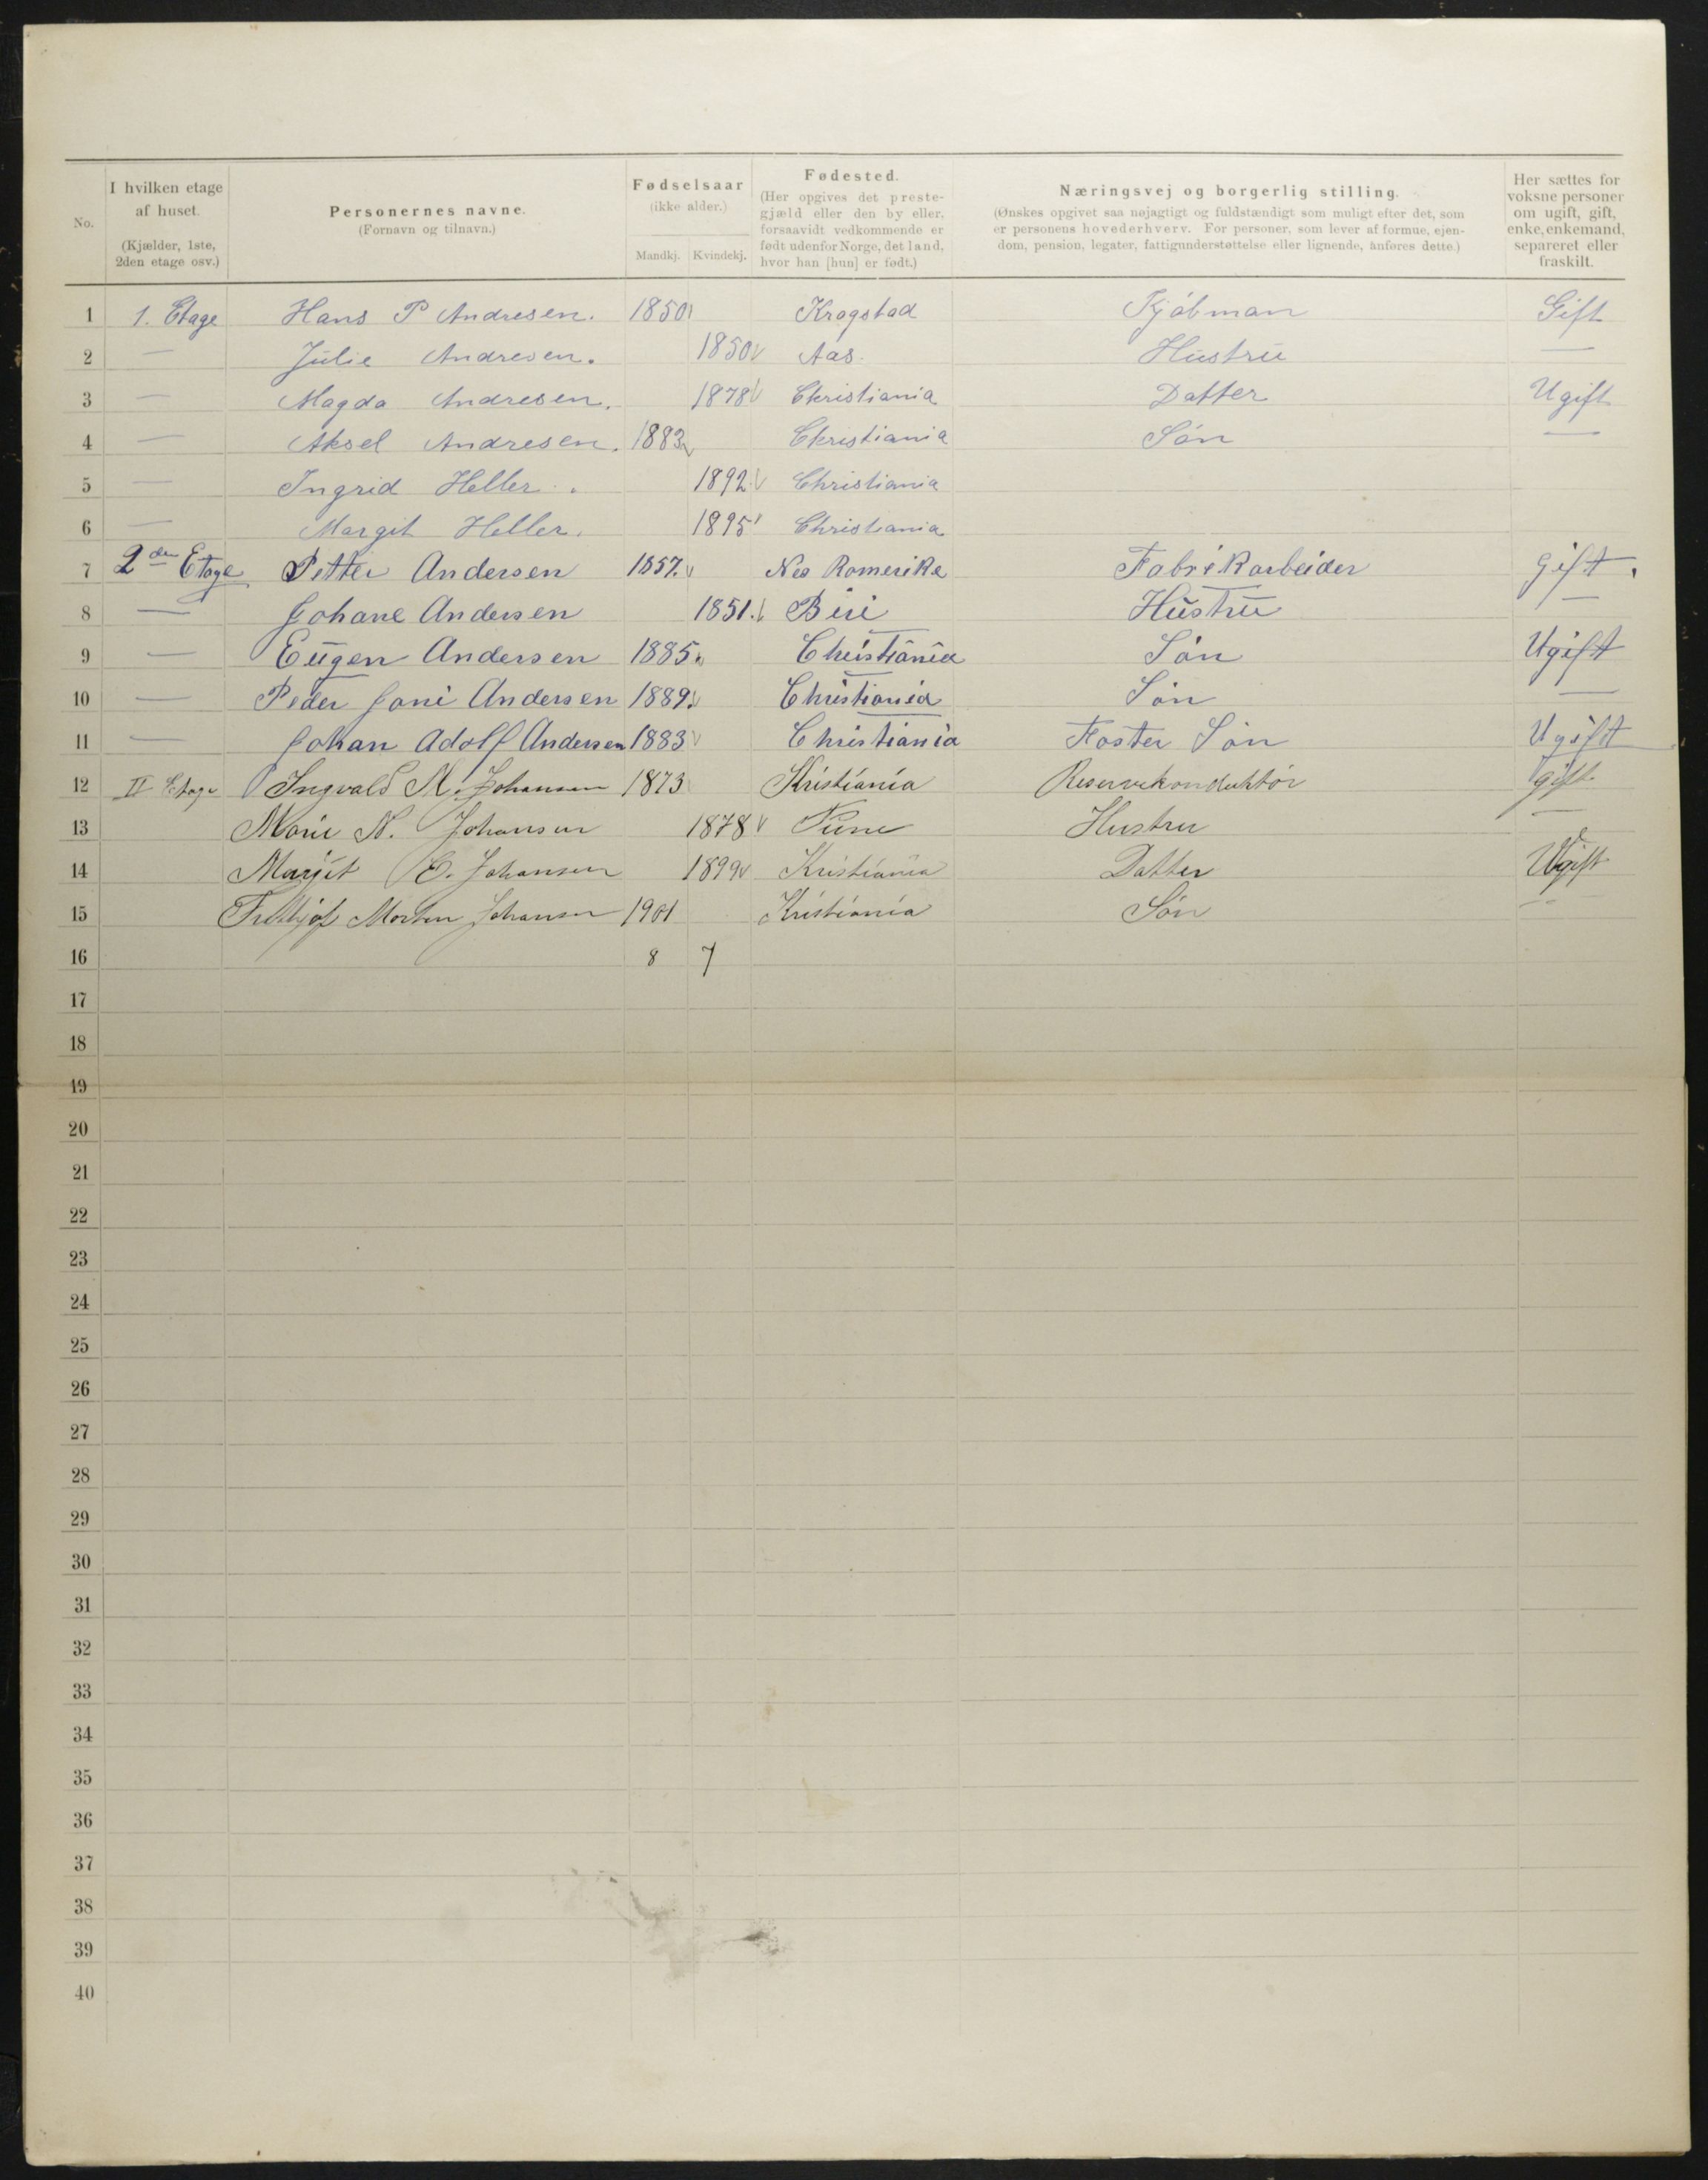 No.
I hvilken etage af huset. (Kjælder, 1ste, 2den etage osv.)
Personernes navne. (Fornavn og tilnavn.)
Fødselsaar (ikke alder.) Mandkj. Kvindekj.
Fødested. (Her opgives det preste-gjæld eller den by eller, forsaavidt vedkommende er født udenfor Norge, det land, hvor han [hun] er født.)
Næringsvej og borgerlig stilling. (Ønskes opgivet saa nøjagtigt og fuldstændigt som muligt efter det, som er personens hovederhverv. For personer, som lever af formue, ejen-dom, pension, legater, fattigunderstøttelse eller lignende, anføres dette.)
Her sættes for voksne personer om ugift, gift, enke, enkemand, separeret eller fraskilt.
1 1. Etage Hans P Andresen. 1850 Kragstad Kjøbman Gift
2 — Julie Andresen. 1850 Aas. Hustru —
3 — Magda Andresen. 1878 Christiania Datter Ugift
4 — Aksel Andresen. 1883 Christiania Søn —
5 — Ingrid Heller. 1892 Christiania
6 — Margit Heller. 1895 Christiania
7 2den Etage Petter Andersen 1857. Nes Romerike Fabrikarbeider gift.
8 — Johane Andersen 1851. Biri Hustru —
9 — Eugen Andersen 1885. Christiania Søn Ugift
10 — Peder Joni Andersen 1889. Christiania Søn —
11 — Johan Adolf Andersen 1883 Christiania Foster Søn Ugift
12 II Etage Ingvald M. Johansen 1873 Kristiania Reservekonduktør gift
13 Marie N. Johansen 1878 Hustru —
14 Margit E. Johansen 1899 Kristiania Datter Ugift
15 Fridtjof Morten Johansen 1901 Kristiania Søn —
16 8 7
17
18
19
20
21
22
23
24
25
26
27
28
29
30
31
32
33
34
35
36
37
38
39
40